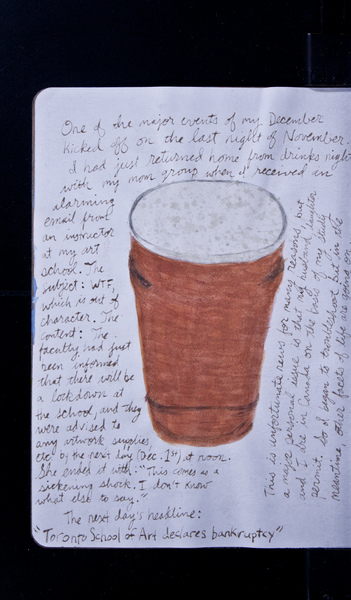 One of the major events of my December
kicked off on the last night of November.
I had just returned home from drinks night
with my mom group when I received an
alarming
email from
an instructor
at my art
school. The
subject: WTF,
which is out of
character. The
content: The
faculty had just
been informed
that there will be
a lockdown at
the school, and they
were advised to
any artwork, supplies,
etc by the next day (Dec. 1st) at noon.
She ended it with: "This comes as a
sickening shock. I don't know
what else to say."
The next day's headline:
"Toronto School of Art declares bankruptcy"
This is unfortunate news for many reasons, but
a major personal issue is that my husband, daughter
and I are in Canada on the basis of my study
permit. So I began to troubleshoot it, but in the
meantime other facets of life are going on